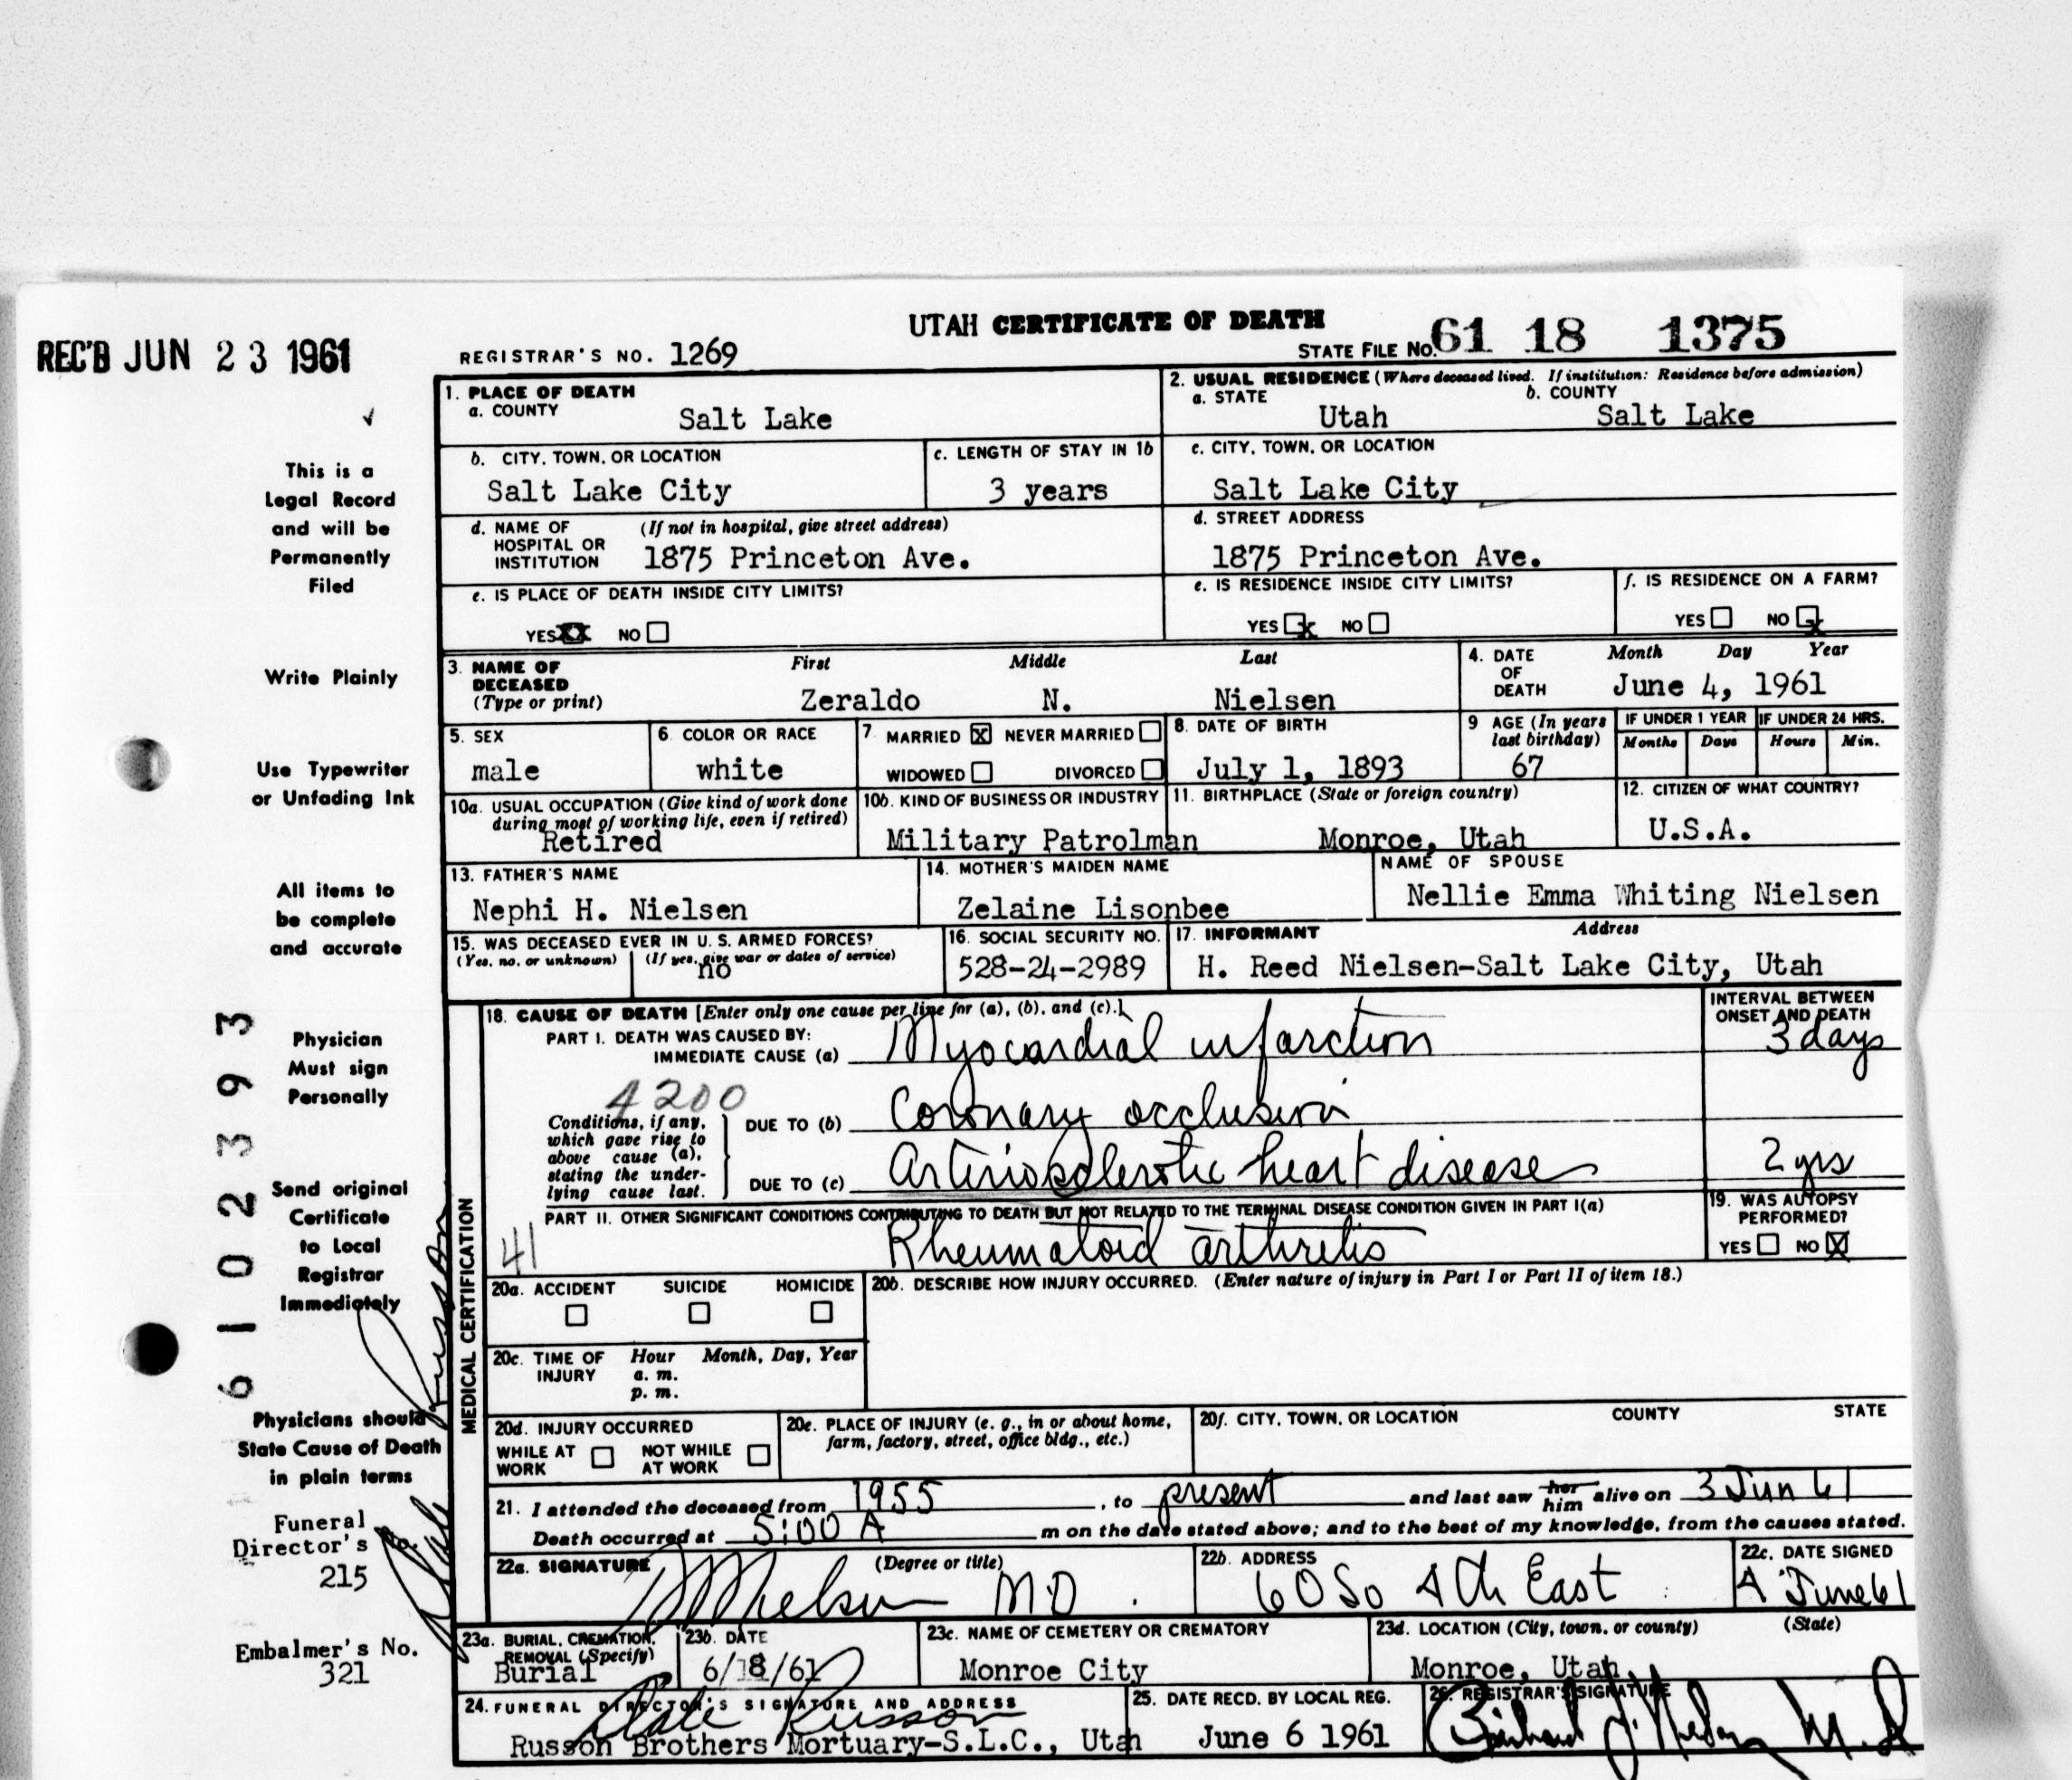 UTAH CERTIFICATE OF DEATH
REC'D JUN 23 1961
REGISTRAR'S NO. 1269
STATE FILE NO. 61 18 1375
This is a
Legal Record
and will be
Permanently
Filed
Write Plainly
Use Typewriter
or Unfading Ink
All items to
be complete
and accurate
Physician
Must sign
Personally
Send original
Certificate
to Local
Registrar
Immediately
Physicians should
State Cause of Death
in plain terms
Funeral
Director's No.
215
Embalmer's No.
321
6102393
Dale Russon
1. PLACE OF DEATH
a. COUNTY
Salt Lake
2. USUAL RESIDENCE (Where deceased lived. If institution: Residence before admission)
a. STATE b. COUNTY
Utah Salt Lake
b. CITY, TOWN, OR LOCATION
Salt Lake City
c. LENGTH OF STAY IN 1b
3 years
c. CITY, TOWN, OR LOCATION
Salt Lake City
d. NAME OF HOSPITAL OR INSTITUTION (If not in hospital, give street address)
1875 Princeton Ave.
d. STREET ADDRESS
1875 Princeton Ave.
e. IS PLACE OF DEATH INSIDE CITY LIMITS?
YES XX NO
e. IS RESIDENCE INSIDE CITY LIMITS?
YES x NO
f. IS RESIDENCE ON A FARM?
YES NO x
3. NAME OF DECEASED (Type or print)
First Middle Last
Zeraldo N. Nielsen
4. DATE OF DEATH
Month Day Year
June 4, 1961
5. SEX
male
6. COLOR OR RACE
white
7. MARRIED X NEVER MARRIED
WIDOWED DIVORCED
8. DATE OF BIRTH
July 1, 1893
9 AGE (In years last birthday)
67
IF UNDER 1 YEAR
Months Days
IF UNDER 24 HRS.
Hours Min.
10a. USUAL OCCUPATION (Give kind of work done during most of working life, even if retired)
Retired
10b. KIND OF BUSINESS OR INDUSTRY
Military Patrolman
11. BIRTHPLACE (State or foreign country)
Monroe, Utah
12. CITIZEN OF WHAT COUNTRY?
U.S.A.
13. FATHER'S NAME
Nephi H. Nielsen
14. MOTHER'S MAIDEN NAME
Zelaine Lisonbee
NAME OF SPOUSE
Nellie Emma Whiting Nielsen
15. WAS DECEASED EVER IN U.S. ARMED FORCES?
(Yes, no, or unknown) (If yes, give war or dates of service)
no
16. SOCIAL SECURITY NO.
528-24-2989
17. INFORMANT Address
H. Reed Nielsen-Salt Lake City, Utah
MEDICAL CERTIFICATION
18. CAUSE OF DEATH [Enter only one cause per line for (a), (b), and (c).]
INTERVAL BETWEEN ONSET AND DEATH
PART I. DEATH WAS CAUSED BY:
IMMEDIATE CAUSE (a) Myocardial infarction 3 days
4200
Conditions, if any, which gave rise to above cause (a), stating the underlying cause last.
DUE TO (b) Coronary occlusion
DUE TO (c) Arteriosclerotic heart disease 2 yrs
PART II. OTHER SIGNIFICANT CONDITIONS CONTRIBUTING TO DEATH BUT NOT RELATED TO THE TERMINAL DISEASE CONDITION GIVEN IN PART I(a)
41
Rheumatoid arthritis
19. WAS AUTOPSY PERFORMED?
YES NO X
20a. ACCIDENT SUICIDE HOMICIDE
20b. DESCRIBE HOW INJURY OCCURRED. (Enter nature of injury in Part I or Part II of item 18.)
20c. TIME OF INJURY Hour Month, Day, Year
a. m.
p. m.
20d. INJURY OCCURRED
WHILE AT WORK NOT WHILE AT WORK
20e. PLACE OF INJURY (e. g., in or about home, farm, factory, street, office bldg., etc.)
20f. CITY, TOWN, OR LOCATION COUNTY STATE
21. I attended the deceased from 1955, to present and last saw her him alive on 3 Jun 61
Death occurred at 5:00 A m on the date stated above; and to the best of my knowledge, from the causes stated.
22a. SIGNATURE (Degree or title)
Nielsen MD
22b. ADDRESS
60 So 4th East
22c. DATE SIGNED
4 June 61
23a. BURIAL, CREMATION, REMOVAL (Specify)
Burial
23b. DATE
6/8/61
23c. NAME OF CEMETERY OR CREMATORY
Monroe City
23d. LOCATION (City, town, or county) (State)
Monroe, Utah
24. FUNERAL DIRECTOR'S SIGNATURE AND ADDRESS
Dale Russon
Russon Brothers Mortuary-S.L.C., Utah
25. DATE RECD. BY LOCAL REG.
June 6 1961
26. REGISTRAR'S SIGNATURE